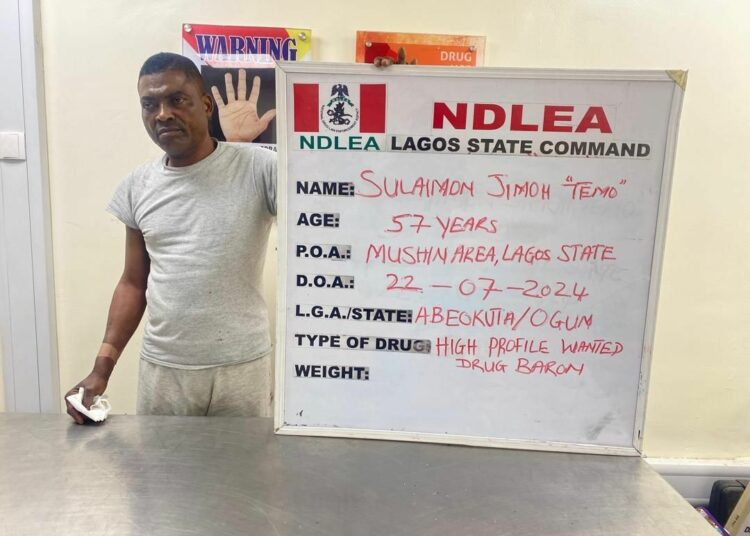 WARNING
DRUG
NDLEA
NDLEA LAGOS STATE COMMAND
NAME: SULAIMON JIMOH "TEMO"
AGE: 57 YEARS
P.O.A.: MUSHIN AREA, LAGOS STATE
D.O.A.: 22-07-2024
L.G.A./STATE: ABEOKUTA/OGUM
TYPE OF DRUG: HIGH PROFILE WANTED
DRUG BARON
WEIGHT: